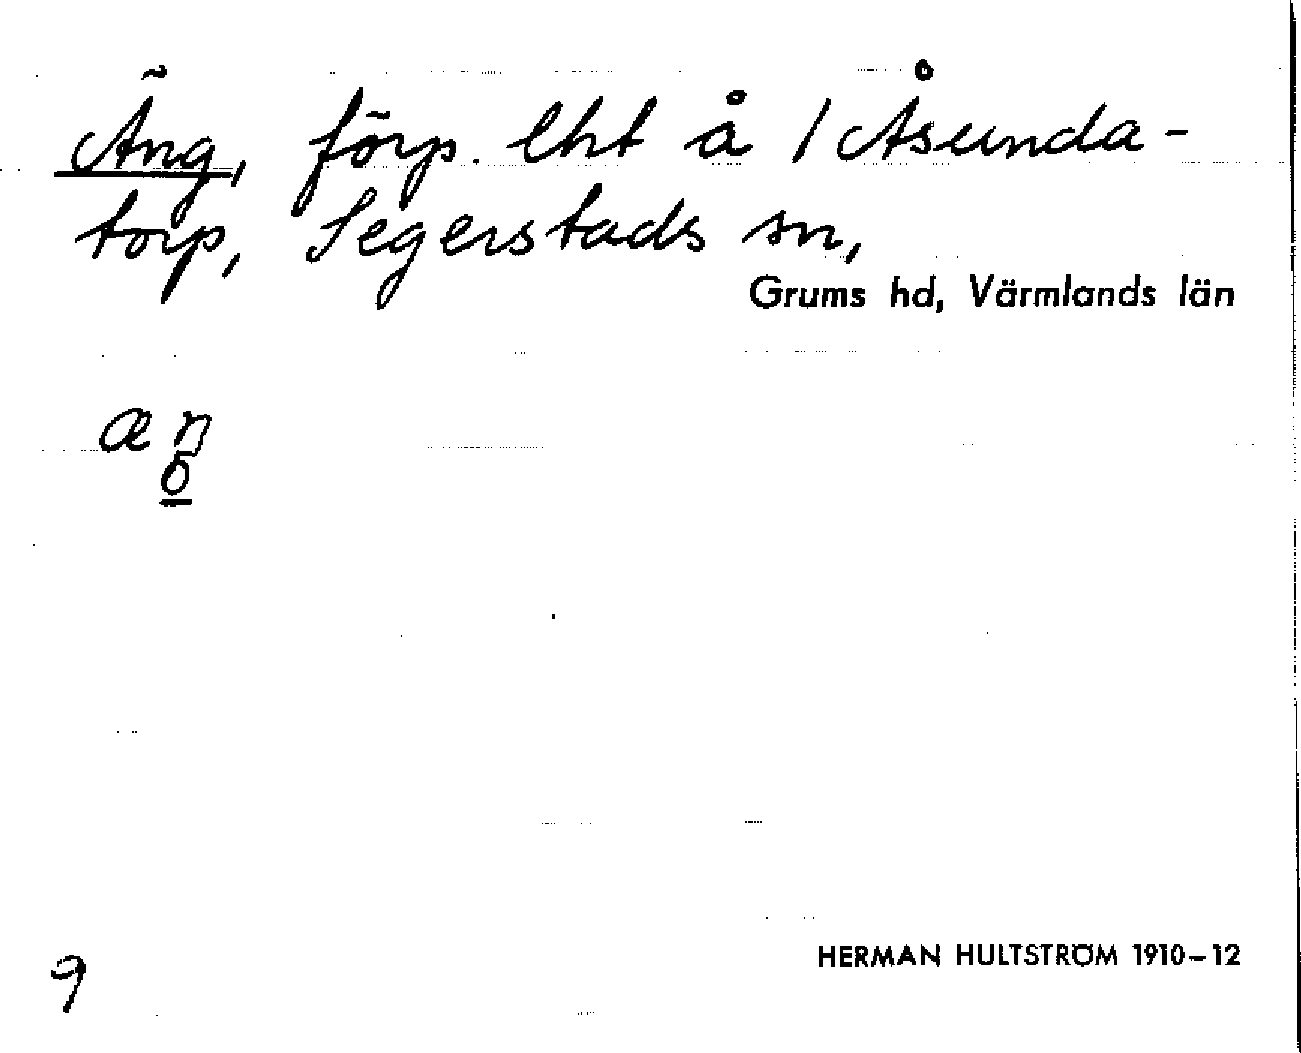 Äng, förp. lht å 1 Åsunda-
torp, Segerstads sn,
Grums hd, Värmlands län
æŋ
6
9
HERMAN HULTSTRÖM 1910-12